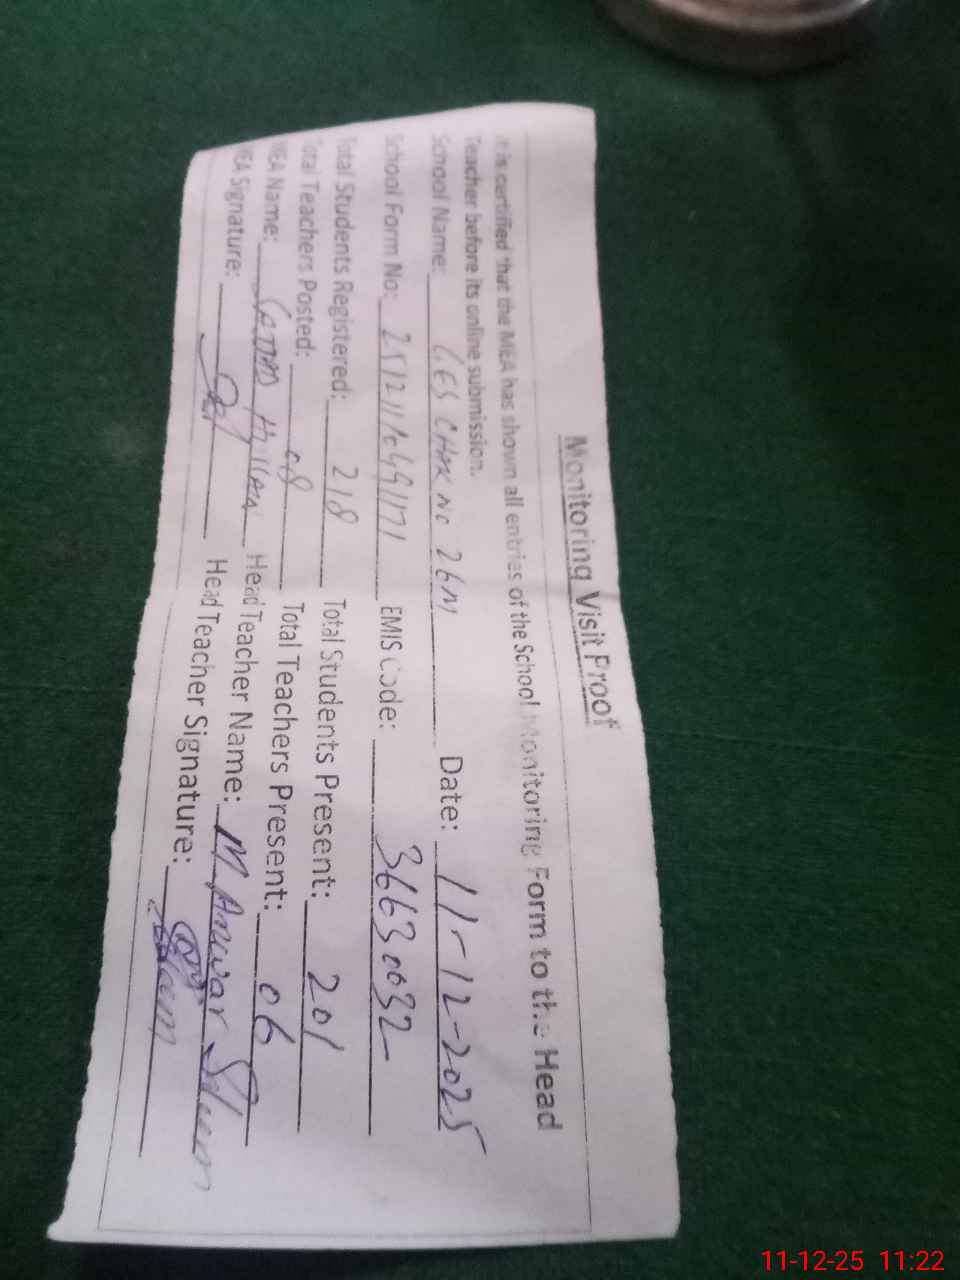 Monitoring Visit Proof
It is certified that the MEA has shown all entries of the School Monitoring Form to the Head
Teacher before its online submission.
School Name: GES CHAK NO 26M Date: 11-12-2025
School Form No: EMIS Code: 36630032
Total Students Registered: 218 Total Students Present: 201
Total Teachers Posted: 08 Total Teachers Present: 06
MEA Name: Head Teacher Name: M Anwar
MEA Signature: Head Teacher Signature:
11-12-25 11:22